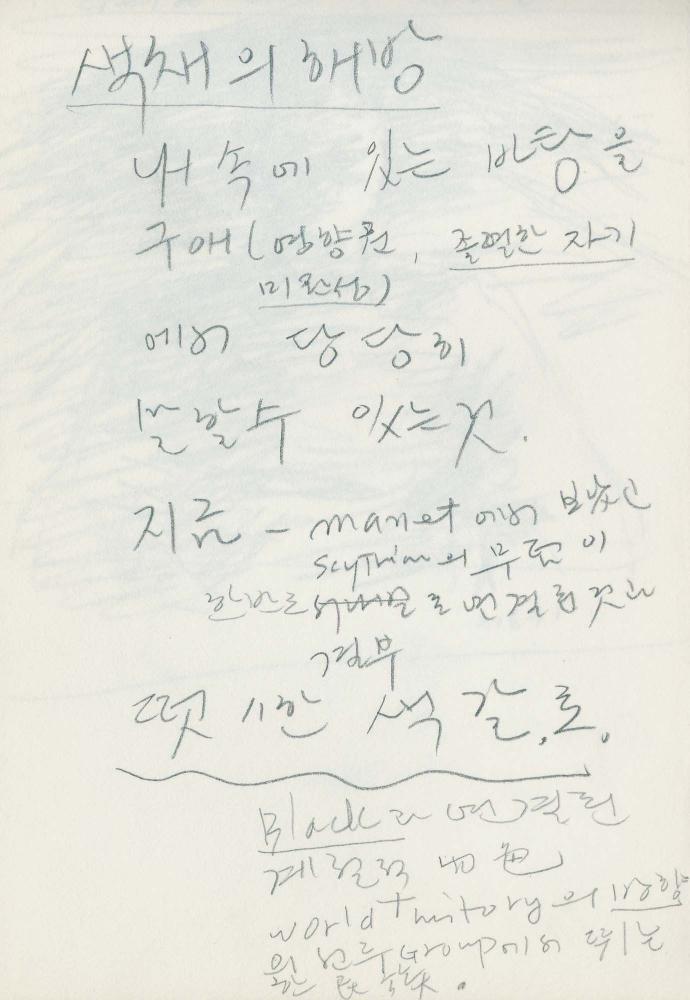 색채의 해방
내 속에 있는 바탕을
구애(영향권, 졸렬한 자기
미완성)
에서 당당히
말할수 있는것.
지금 - manet에서 보았고
scythian의 무덤이
한반도로 연결된것과
결부
떳떳한 색갈.로.
Black과 연결된
계열적 色
world history의 방향
을 선두 Group에서 뛰는
民族.